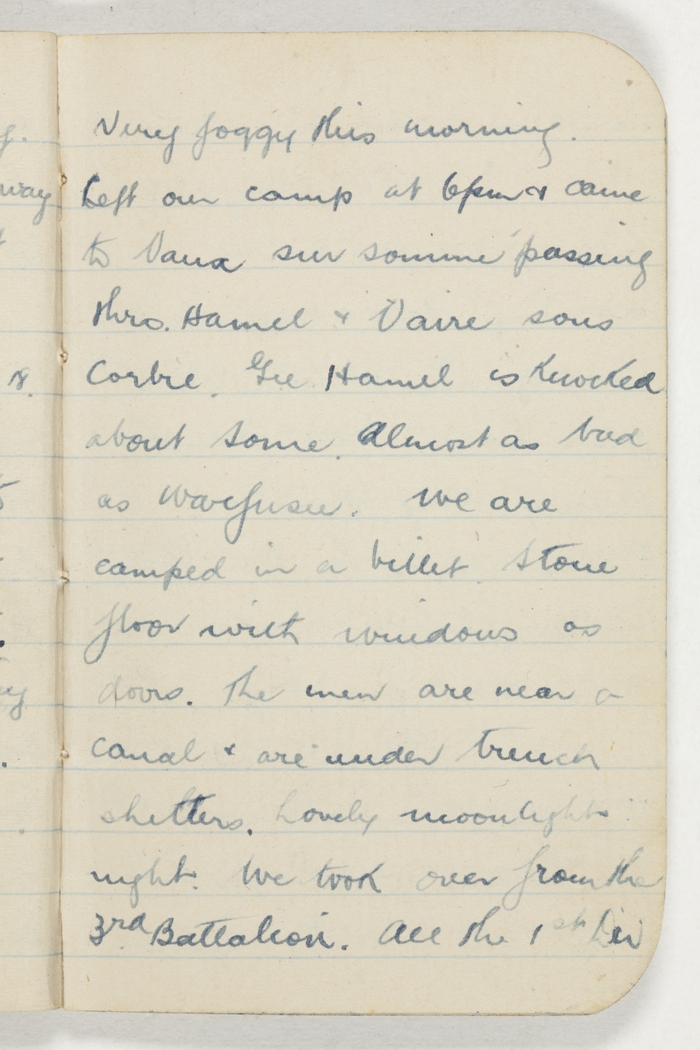 y.
way
Very foggy this morning.
Left our camp at 6pm & came
to Vaux sur somme passing
thro. Hamel & Vaire sous
Corbie. Gee Hamel is knocked
about some. Almost as bad
as Warfusee. We are
camped in a billet. Stone
floor with windows as
doors. The men are near a
canal & are under trench
shelters. Lovely moonlight
night. We took over from the
3rd Battalion. All the 1st Div